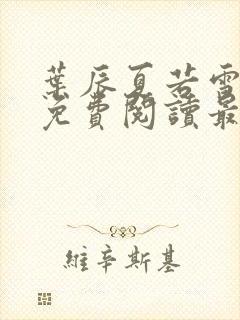 葉辰夏若雪
免費閱讀最
維辛斯基